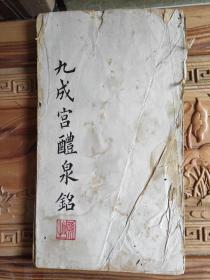 九成宫醴泉銘